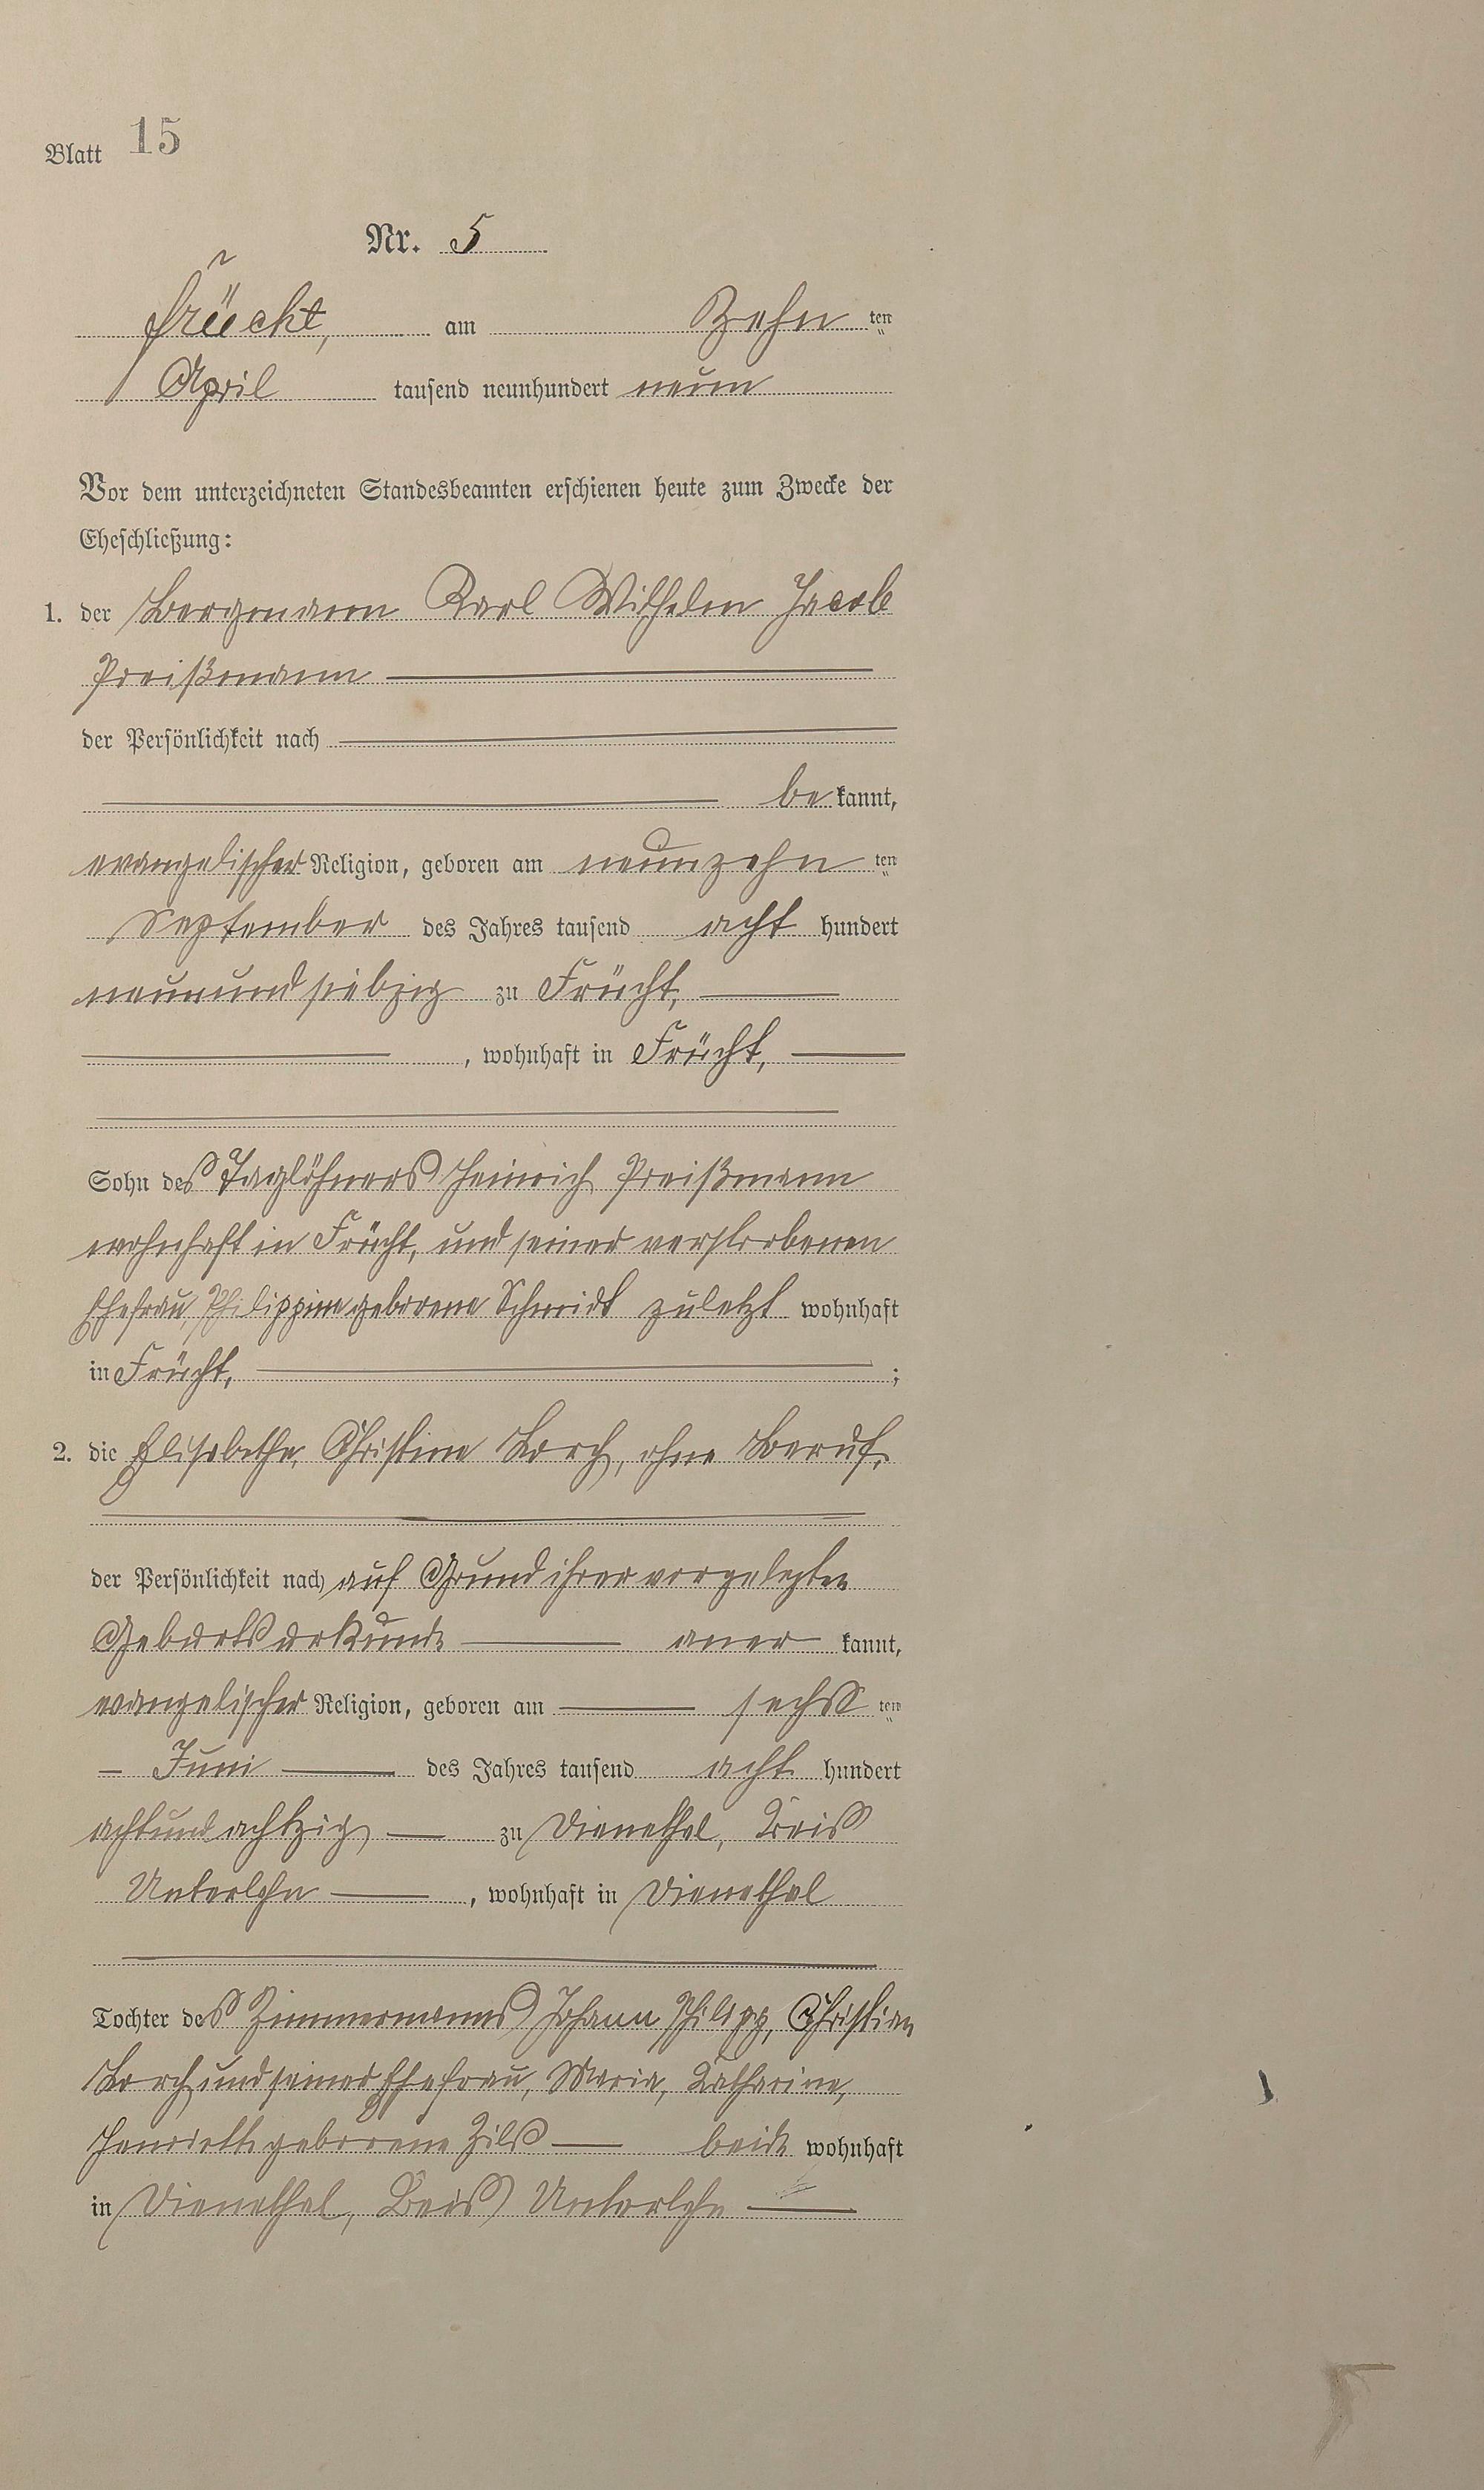 Blatt 15
Nr. 5
Früecht, am Zehn ten
April tausend neunhundert neun
Vor dem unterzeichneten Standesbeamten erschienen heute zum Zwecke der
Eheschließung:
1. der Bergmann Karl Wilhelm Jacob
Preißmann
der Persönlichkeit nach
be kannt,
evangelischer Religion, geboren am neunzehn ten
September des Jahres tausend acht hundert
neunundsiebzig zu Frücht,
, wohnhaft in Frücht,
Sohn des Taglöhners Heinrich Preißmann
wohnhaft in Frücht, und seiner verstorbenen
Ehefrau, Philippine geborene Schmidt zuletzt wohnhaft
in Frücht, ;
2. die Elisabethe, Christine Lorch, ohne Beruf,
der Persönlichkeit nach auf Grund ihrer vorgelegten
Geburtsurkunde aner kannt,
evangelischer Religion, geboren am sechs ten
Juni des Jahres tausend acht hundert
achtundachtzig zu Dienethal, Kreis
Unterlahn , wohnhaft in Dienethal
Tochter des Zimmermanns Johann Philipp, Christian
Lorch und seiner Ehefrau, Maria, Katharine,
Henriette geborene Zils beide wohnhaft
in Dienethal, Kreis Unterlahn